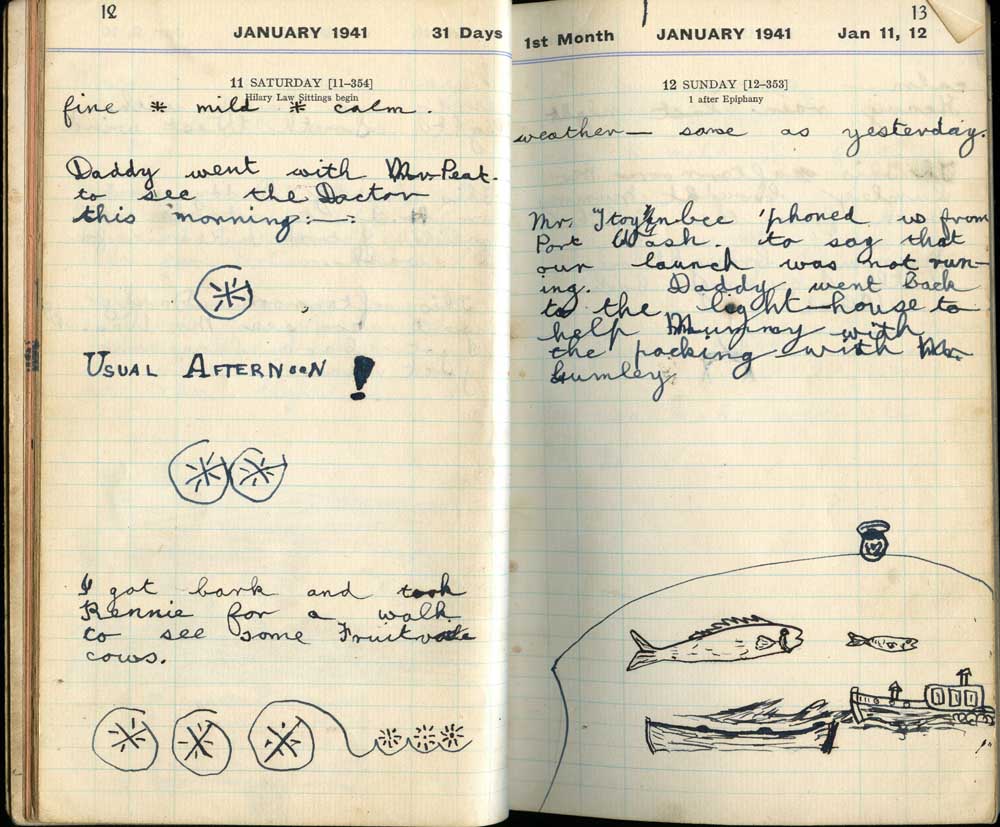 12
JANUARY 1941 31 Days
11 SATURDAY [11–354]
Hilary Law Sittings begin
fine * mild * calm.
Daddy went with Mr. Peat.
to see the Doctor
this morning:—:
USUAL AFTERNOON!
I got bark and took
Rennie for a walk
to see some Fruitvale
cows.
13
1st Month JANUARY 1941 Jan 11, 12
12 SUNDAY [12–353]
1 after Epiphany
weather— same as yesterday.
Mr. 'phoned us from
Port Wash. to say that
our launch was not run-
ing. Daddy went back
to the light-house to
help Mummy with
the packing with Mr.
Gumley.